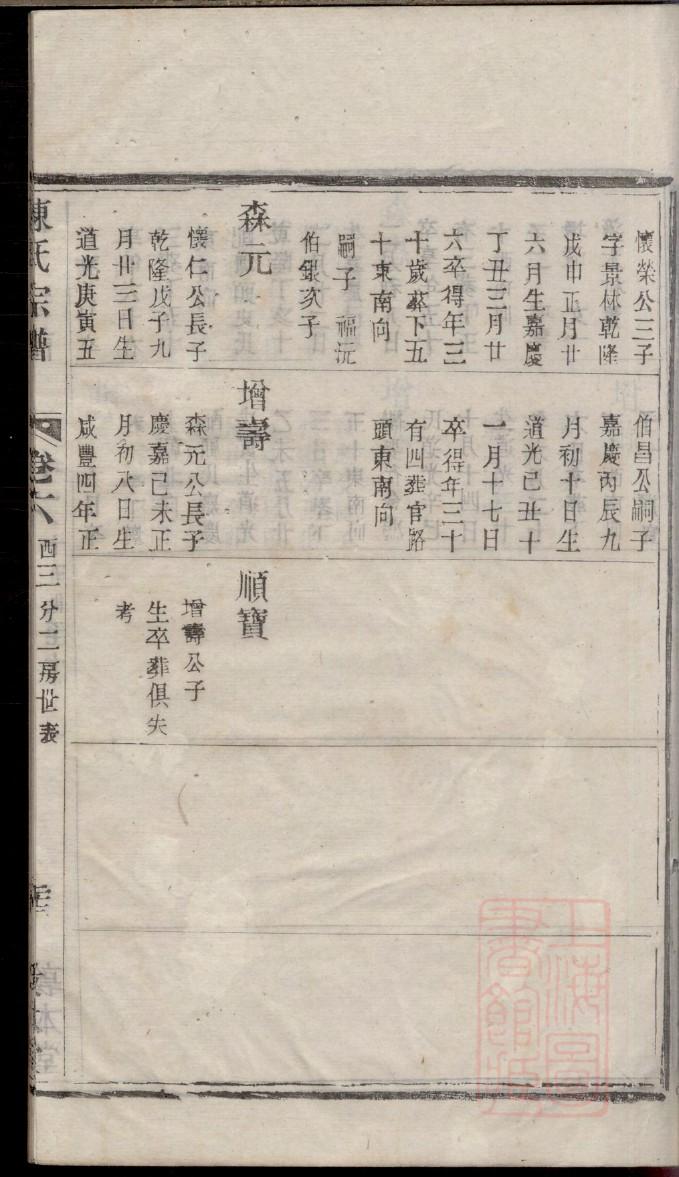 懷榮公三子
字景林乾隆
戊申正月廿
六月生嘉慶
丁丑三月廿
六卒得年三
十歲葬下五
十東南向
嗣子 福沅
伯銀次子
森元
懷仁公長子
乾隆戊子九
月廿三日生
道光庚寅五
伯昌公嗣子
嘉慶丙辰九
月初十日生
道光己丑十
一月十七日
卒得年三十
有四葬官路
頭東南向
增壽
森元公長子
慶嘉己未正
月初八日生
咸豐四年正
順寶
增壽公子
生卒葬俱失
考
陳氏宗譜
卷六
西三分二房世表
敦本堂
上海圖書館藏